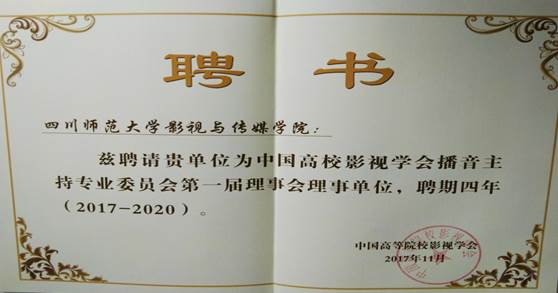 聘书
四川师范大学影视与传媒学院：
兹聘请贵单位为中国高校影视学会播音主
持专业委员会第一届理事会理事单位，聘期四年
（2017-2020）。
中国高等院校影视学会
2017年11月